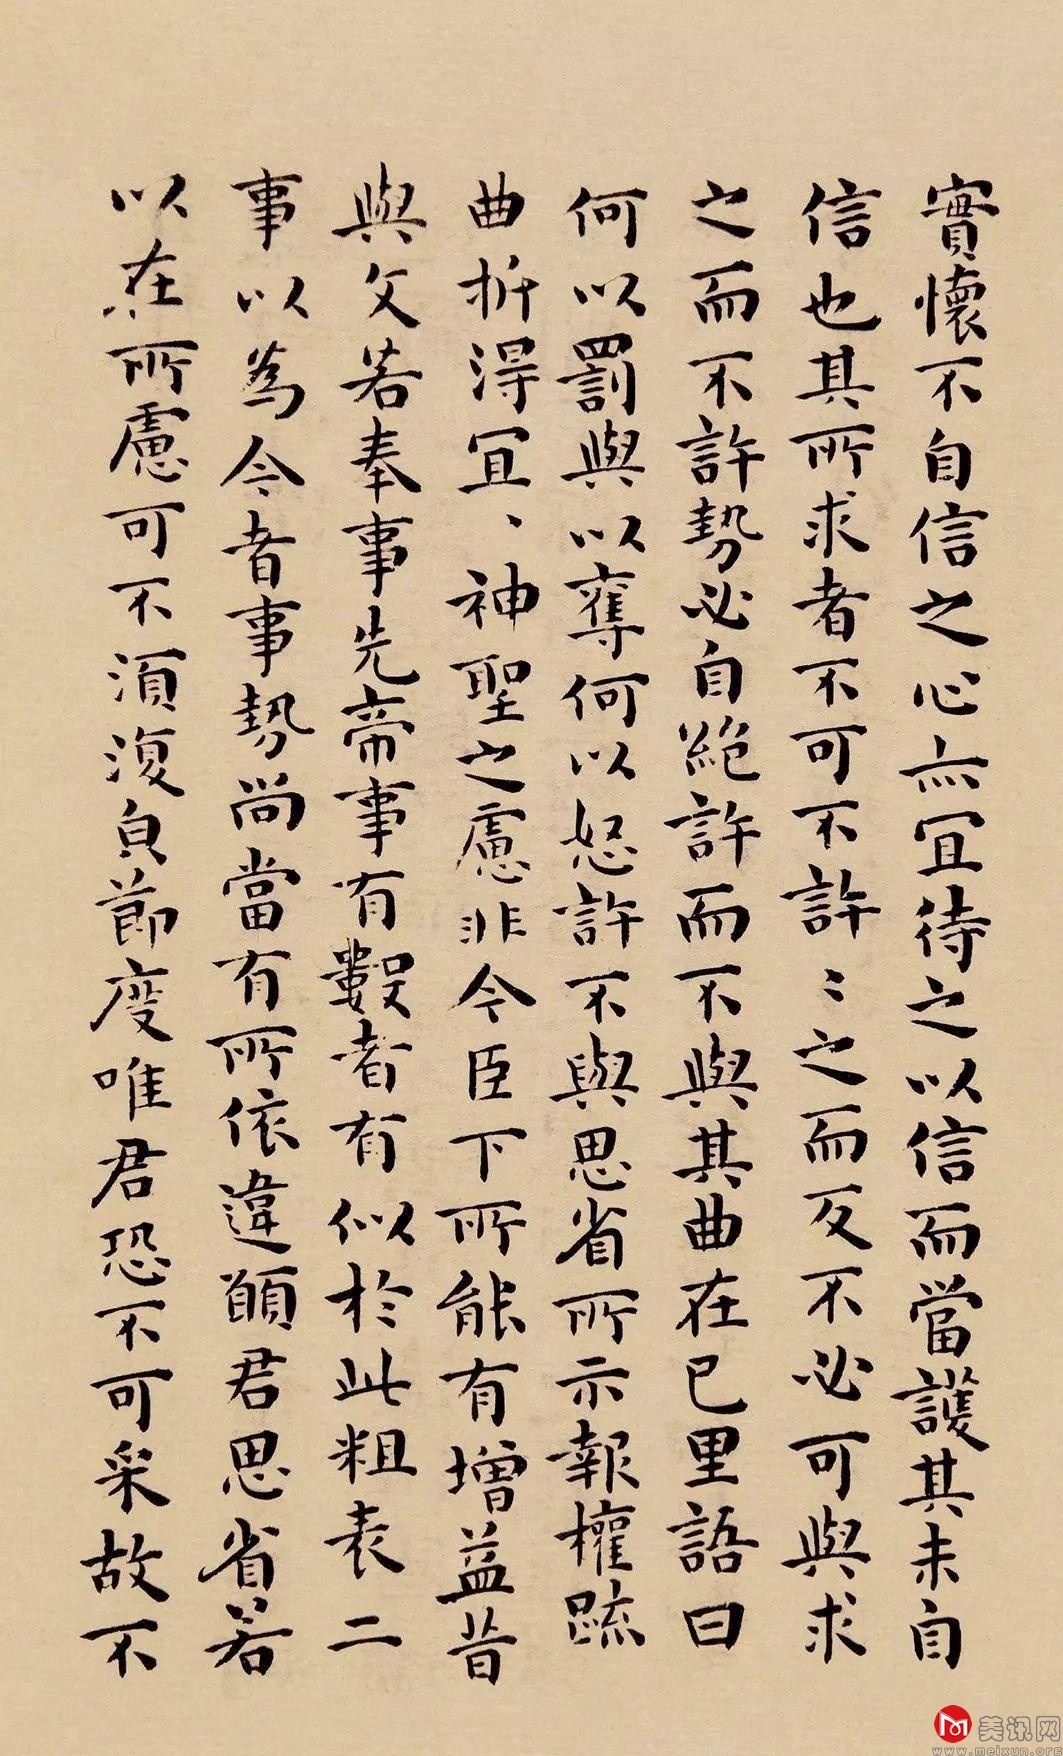 實懷不自信之心亦宜待之以信而當護其未自
信也其所求者不可不許〻之而反不必可與求
之而不許勢必自絕許而不與其曲在己里語曰
何以罰與以奪何以怒許不與思省所示報權疏
曲折得宜、神聖之慮非今臣下所能有增益昔
與文若奉事先帝事有數者有似於此粗表二
事以為今者事勢尚當有所依違願君思省若
以在所慮可不須復負節度唯君恐不可采故不
美讯网
www.meixun.org